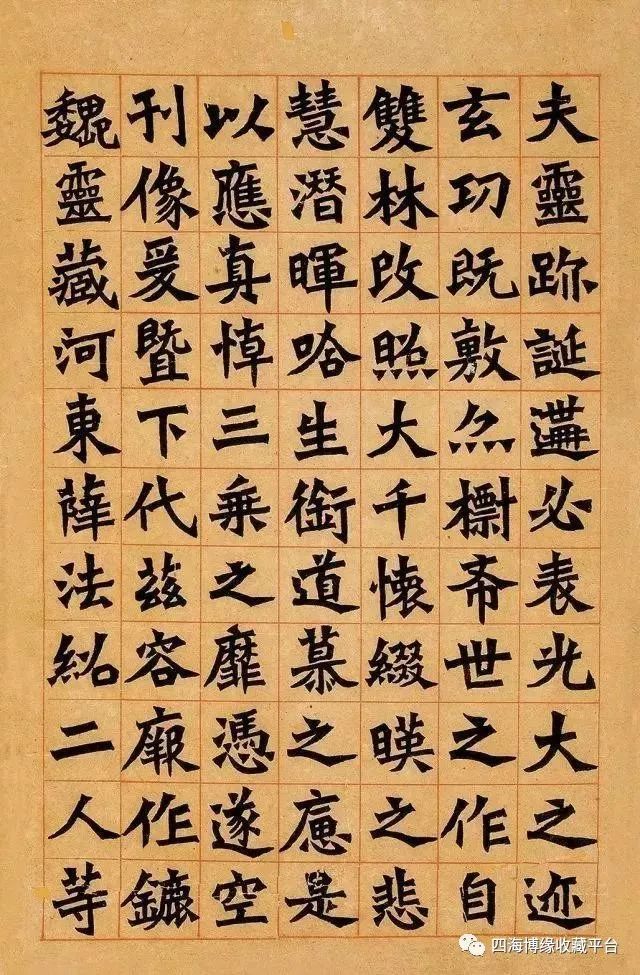 夫靈跡誕遘必表光大之迹
玄功既敷亦標希世之作自
雙林改照大千懷綴暎之悲
慧潛暉唅生銜道慕之是
以應真悼三乘之靡憑遂空
刊像爰暨下代茲容廓作鑣
魏靈藏河東薛法紹二人等
四海博缘收藏平台